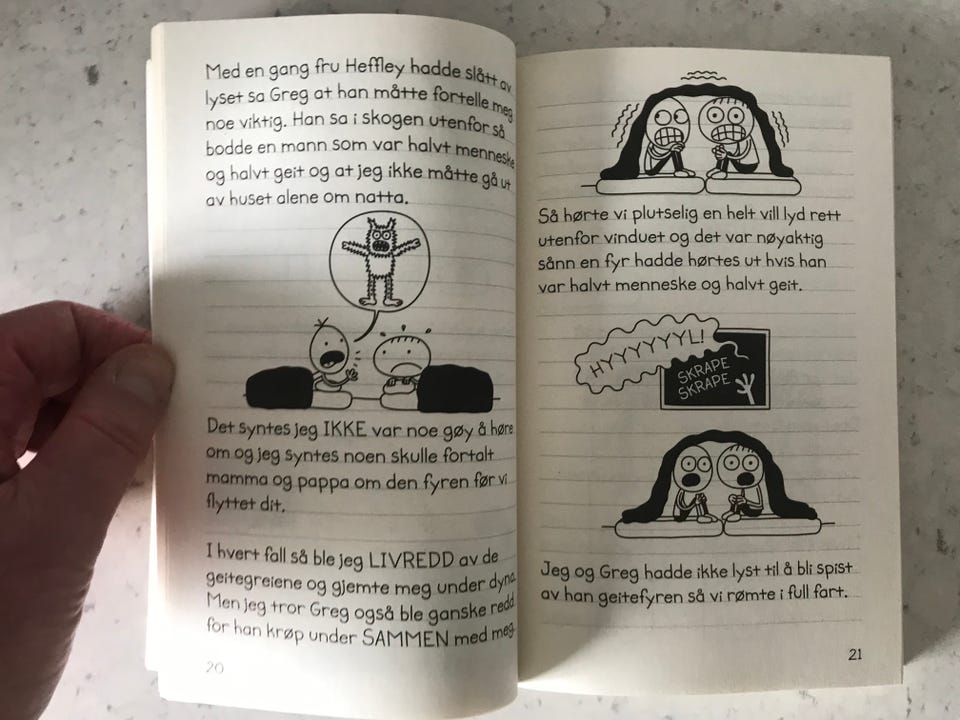 Med en gang fru Heffley hadde slått av
lyset sa Greg at han måtte fortelle meg
noe viktig. Han sa i skogen utenfor så
bodde en mann som var halvt menneske
og halvt geit og at jeg ikke måtte gå ut
av huset alene om natta.
Det syntes jeg IKKE var noe gøy å høre
om og jeg syntes noen skulle fortalt
mamma og pappa om den fyren før vi
flyttet dit.
I hvert fall så ble jeg LIVREDD av de
geitegreiene og gjemte meg under dyna.
Men jeg tror Greg også ble ganske redd
for han krøp under SAMMEN med meg.
20
Så hørte vi plutselig en helt vill lyd rett
utenfor vinduet og det var nøyaktig
sånn en fyr hadde hørtes ut hvis han
var halvt menneske og halvt geit.
HYYYYYYL!
SKRAPE
SKRAPE
Jeg og Greg hadde ikke lyst til å bli spist
av han geitefyren så vi rømte i full fart.
21